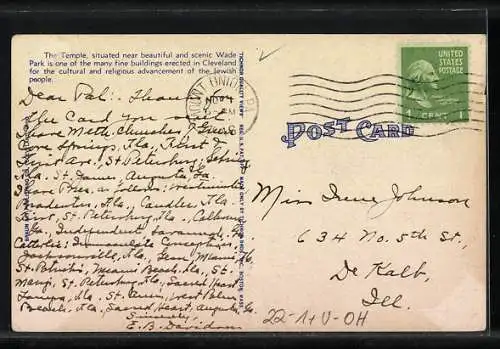 The Temple, situated near beautiful and scenic Wade
Park is one of the many fine buildings erected in Cleveland
for the cultural and religious advancement of the Jewish
people.
Dear Pal: Thanks
the Card you
have Meth. Churches
Springs, Fla,
Ave., St. Petersburg,
Fla. St. James, Augusta, Ga.
have Pres. as follows: Westminster
Bradenton, Fla., Candler, Fla.
First, St. Petersburg, Fla. Calhoun
Ga., Independent Savannah, Ga.
Catholic: Immaculate Conception,
Jacksonville, Fla., Gesu Miami, Fla.
St. Patricks, Miami Beach, Fla., St.
Marys, St. Petersburg, Fla., Sacred Heart
Tampa, Fla., St. Anns, West Palm
Beach, Fla., Sacred Heart, Augusta, Ga.
Sincerely,
E. B. Davidson
TICHNOR QUALITY VIEWS
MADE ONLY BY TICHNOR BROS., INC., BOSTON, MASS.
MOUNT UNION
UNITED
STATES
POSTAGE
1 CENT 1
POST CARD
Miss Irene Johnson
634 No. 5th St.,
De Kalb,
Ill.
22-1+V-OH